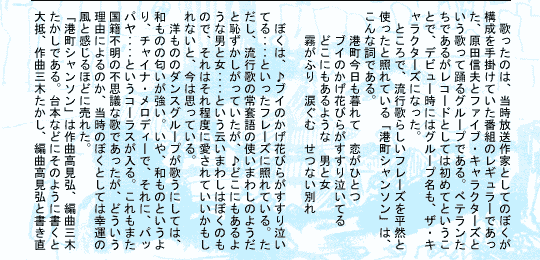 歌ったのは、当時放送作家としてのぼくが
構成を手掛けていた番組のレギュラーであっ
た、原田信夫とファイブ・キャラクターズと
いう歌って踊るグループである。ベテランた
ちであるがレコードとしては初めてというこ
とで、デビュー時にはグループ名も、ザ・キ
ャラクターズになった。
ところで、流行歌らしいフレーズを平然と
使ったと照れている「港町シャンソン」は、
こんな詞である。
港町今日も暮れて 恋がひとつ
ブイのかげ花びらがすすり泣いてる
どこにもあるような 男と女
霧がふり 涙ぐむ せつない別れ
ぼくは、♪ブイのかげ花びらがすすり泣い
てる･･･といったフレーズに照れている。た
だし、流行歌の常套語の使いまわしのようだ
と恥ずかしがっていたが、♪どこにもあるよ
うな男と女･･･という云いまわしはぼくのも
ので、それはそれ程度に愛されていいかもし
れないと、今は思っている。
洋もののダンスグループが歌うにしては、
和ものの匂いが強い。いや、和ものというよ
り、チャイナ・メロディーで、それに、パッ
パヤ･･･というコーラスが入る。これもまた
国籍不明の不思議な歌であったが、どういう
理由によるのか、当時のぼくとしては幸運の
風と感じるほどに売れた。
「港町シャンソン」は作曲高見弘、編曲三木
たかしである。台本などにそのように書くと
大抵、作曲三木たかし、編曲高見弘と書き直